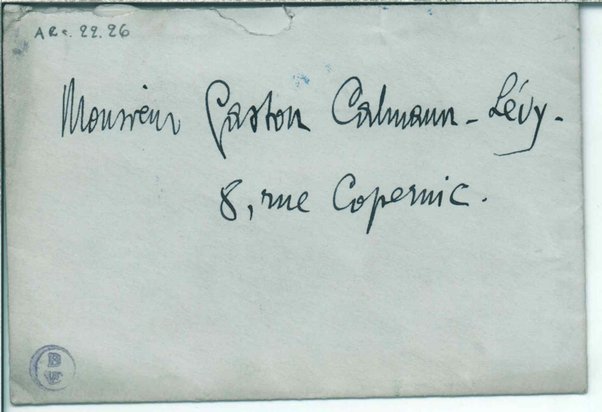 ARc. 22. 26
Monsieur Gaston Calmann-Lévy.
8, rue Copernic.